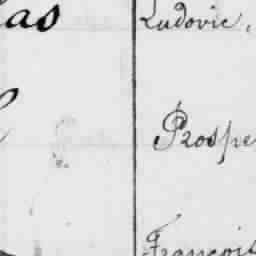 as Ludovic,
Prospe
François